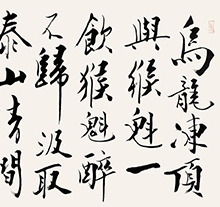 烏龍凍頂
與猴魁一
飲猴魁醉
不歸汲取
泰山青間